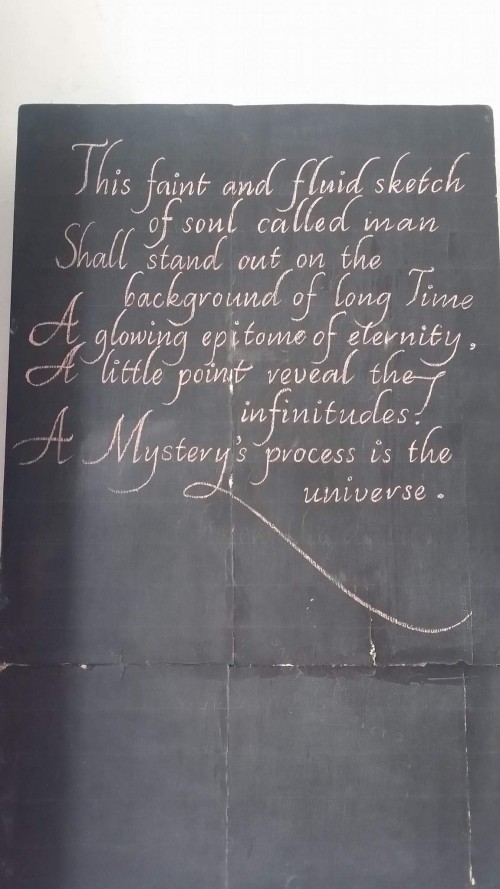 This faint and fluid sketch
of soul called man
Shall stand out on the
background of long Time
A glowing epitome of eternity,
A little point reveal the
infinitudes.
A Mystery's process is the
universe.